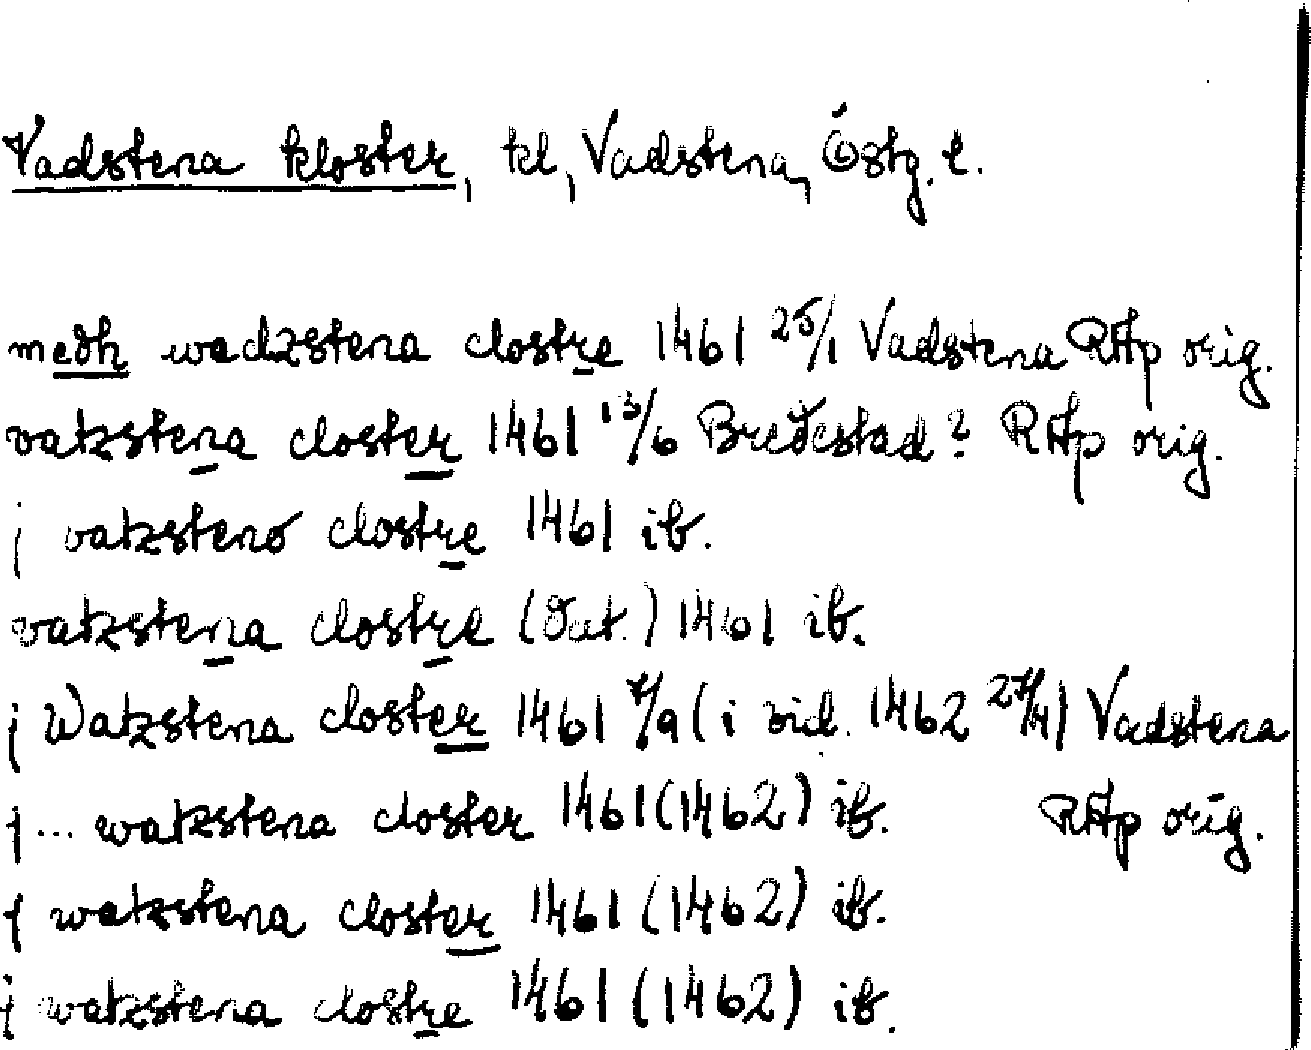 Vadstena kloster, kl, Vadstena, Östg. l.
medh wadzstena clostre 1461 25/1 Vadstena RAp orig.
vatzstena closter 1461 13/6 Bredestad? RAp orig.
j vatzstenö clostre 1461 ib.
vatzstena clostre (Dat.) 1461 ib.
j Watzstena closter 1461 7/9 (i vid. 1462 27/4) Vadstena
j... watzstena closter 1461 (1462) ib. RAp orig.
j watzstena closter 1461 (1462) ib.
j watzstena clostre 1461 (1462) ib.